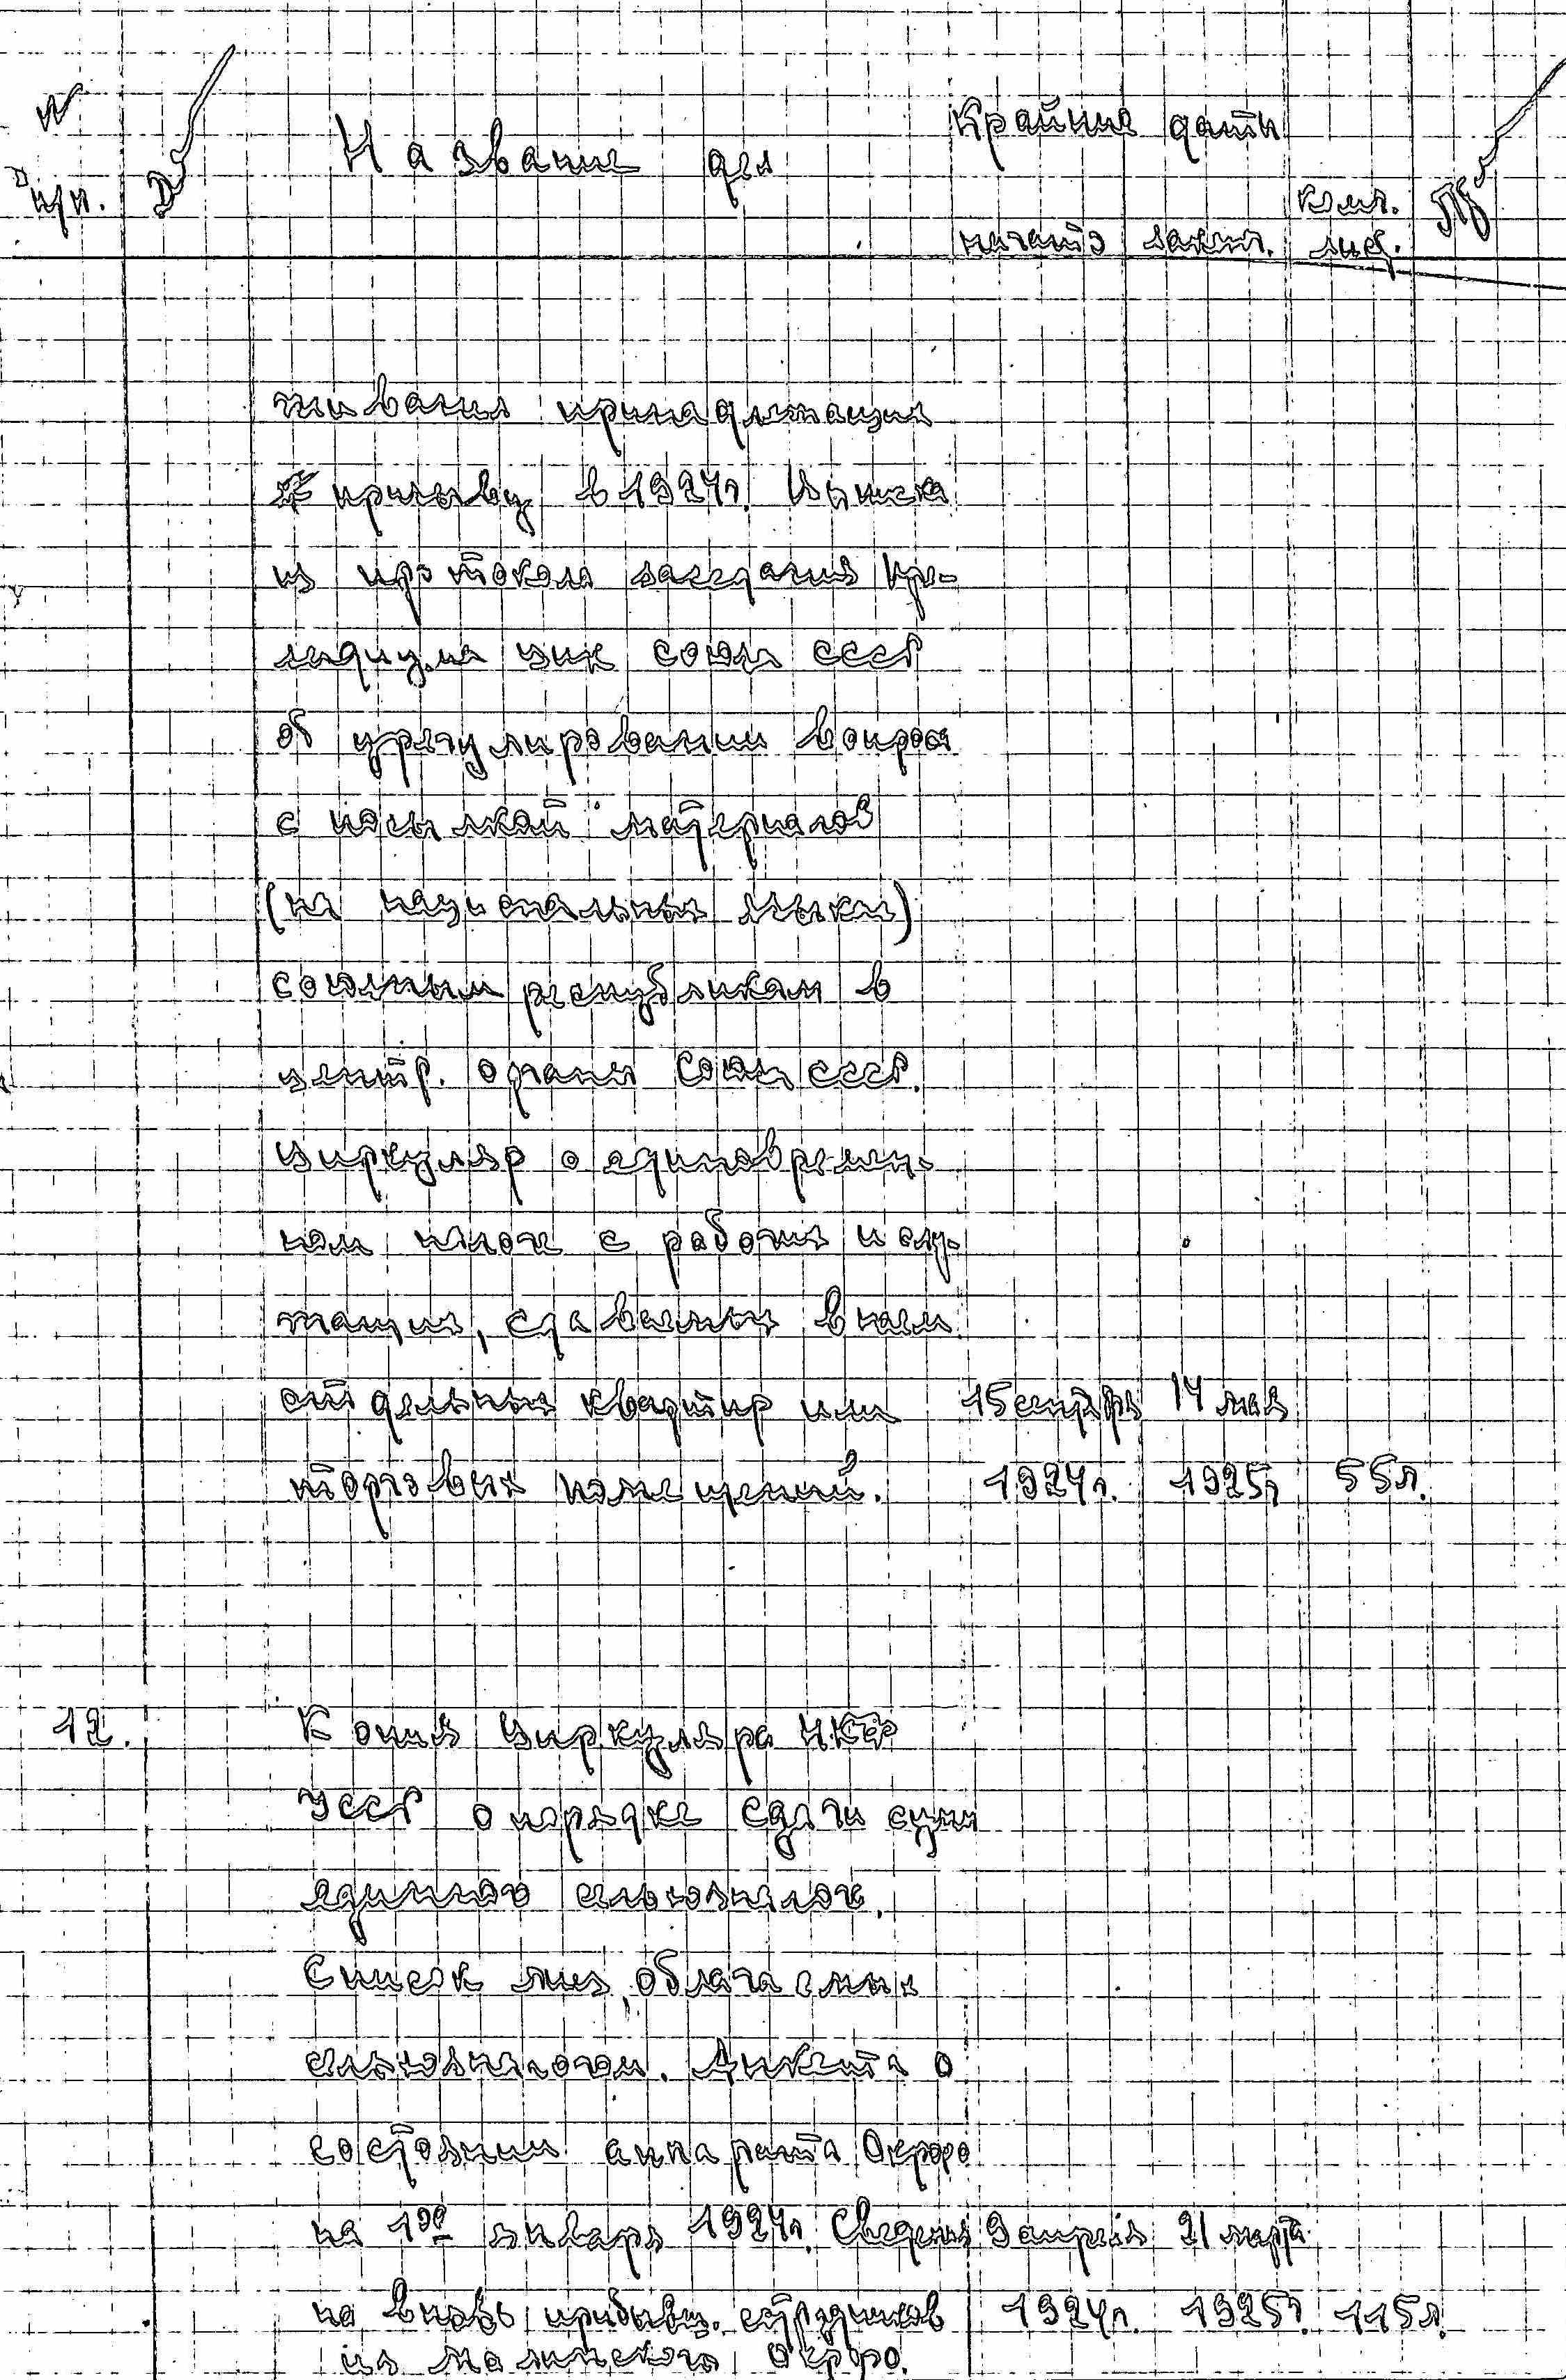 N
п/п.
Название дел
Крайние даты
начато законч.
колич. лист.
живания принадлежащих
к призыву в 1924г. Выписка
из протокола заседания пре-
зидиума ЦИК союза СССР
об урегулировании вопроса
с посылкой материалов
(на национальных языках)
союзным республикам в
центр. органы Союза СССР.
Циркуляр о единовремен-
ном налоге с рабочих и слу-
жащих, сдаваемых в наем
отдельных квартир или 15 сентября 14 мая
торговых помещений. 1924г. 1925г. 55л.
12. Копия циркуляра НКФ
УССР о порядке сдачи сумм
единого сельхозналога.
Список лиц, облагаемых
сельхозналогом. Анкета о
состоянии аппарата Окрфо
на 1ое января 1924г. Сведения 9 апреля 21 марта
на вновь прибывш. сотрудников 1924г. 1925г. 115л.
из Малинского Окрфо.